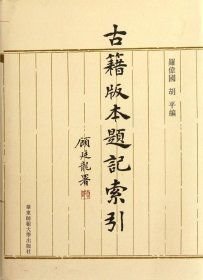 羅偉國 胡平編
古籍版本題記索引
顧廷龍署
華東師範大學出版社